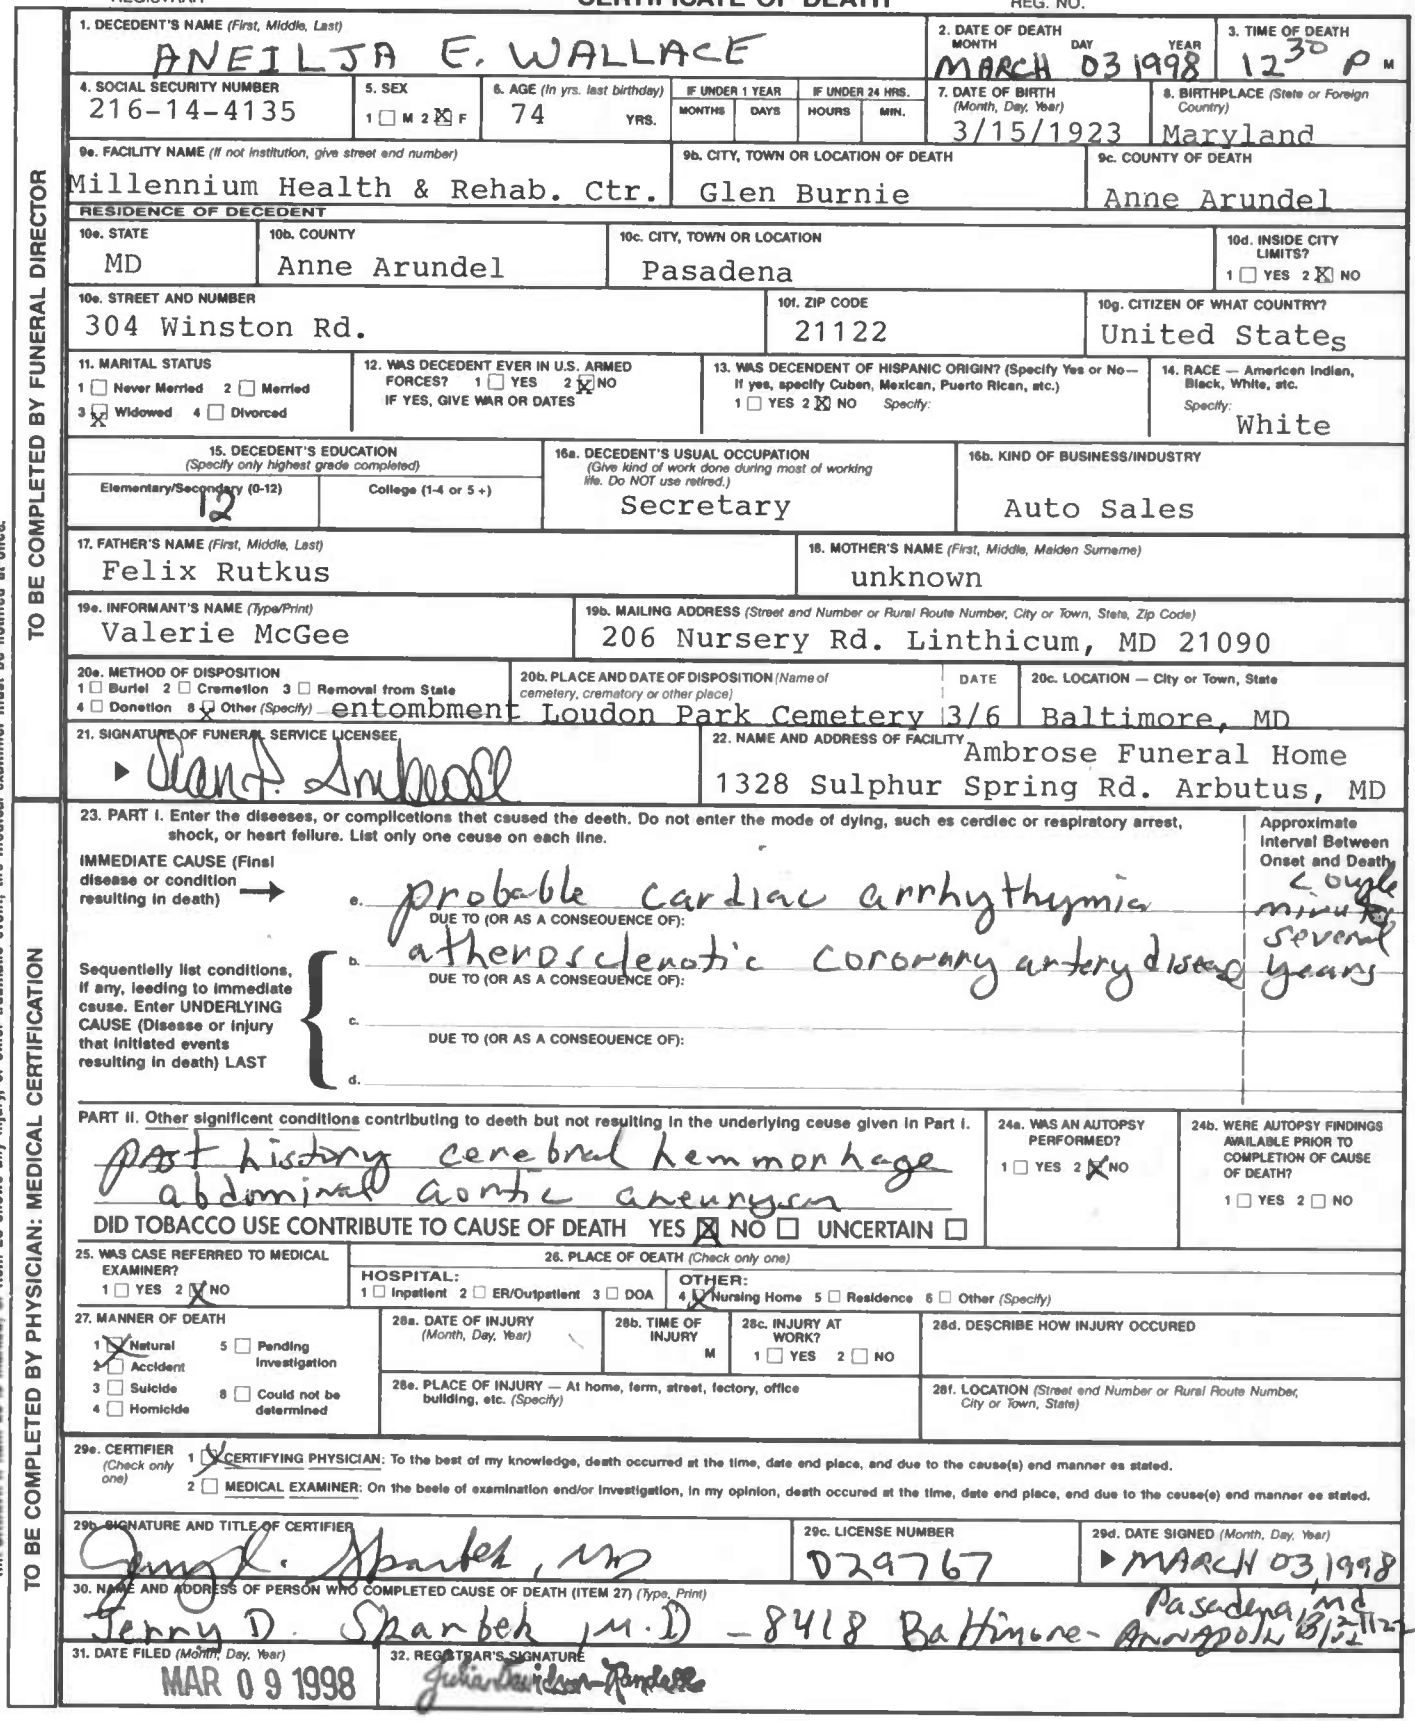 CERTIFICATE OF DEATH
REG. NO.
TO BE COMPLETED BY FUNERAL DIRECTOR
1. DECEDENT'S NAME (First, Middle, Last)
ANEILJA E. WALLACE
2. DATE OF DEATH
MONTH DAY YEAR
MARCH 03 1998
3. TIME OF DEATH
12 30 P M
4. SOCIAL SECURITY NUMBER
216-14-4135
5. SEX
1 ☐ M 2 ☒ F
6. AGE (In yrs. last birthday)
74 YRS.
IF UNDER 1 YEAR
MONTHS DAYS
IF UNDER 24 HRS.
HOURS MIN.
7. DATE OF BIRTH
(Month, Day, Year)
3/15/1923
8. BIRTHPLACE (State or Foreign
Country)
Maryland
9a. FACILITY NAME (If not institution, give street and number)
Millennium Health & Rehab. Ctr.
9b. CITY, TOWN OR LOCATION OF DEATH
Glen Burnie
9c. COUNTY OF DEATH
Anne Arundel
RESIDENCE OF DECEDENT
10a. STATE
MD
10b. COUNTY
Anne Arundel
10c. CITY, TOWN OR LOCATION
Pasadena
10d. INSIDE CITY
LIMITS?
1 ☐ YES 2 ☒ NO
10e. STREET AND NUMBER
304 Winston Rd.
10f. ZIP CODE
21122
10g. CITIZEN OF WHAT COUNTRY?
United States
11. MARITAL STATUS
1 ☐ Never Married 2 ☐ Married
3 ☒ Widowed 4 ☐ Divorced
12. WAS DECEDENT EVER IN U.S. ARMED
FORCES? 1 ☐ YES 2 ☒ NO
IF YES, GIVE WAR OR DATES
13. WAS DECENDENT OF HISPANIC ORIGIN? (Specify Yes or No—
If yes, specify Cuban, Mexican, Puerto Rican, etc.)
1 ☐ YES 2 ☒ NO Specify:
14. RACE — American Indian,
Black, White, etc.
Specify:
White
15. DECEDENT'S EDUCATION
(Specify only highest grade completed)
Elementary/Secondary (0-12) College (1-4 or 5 +)
12
16a. DECEDENT'S USUAL OCCUPATION
(Give kind of work done during most of working
life. Do NOT use retired.)
Secretary
16b. KIND OF BUSINESS/INDUSTRY
Auto Sales
17. FATHER'S NAME (First, Middle, Last)
Felix Rutkus
18. MOTHER'S NAME (First, Middle, Maiden Surname)
unknown
19a. INFORMANT'S NAME (Type/Print)
Valerie McGee
19b. MAILING ADDRESS (Street and Number or Rural Route Number, City or Town, State, Zip Code)
206 Nursery Rd. Linthicum, MD 21090
20a. METHOD OF DISPOSITION
1 ☐ Burial 2 ☐ Cremation 3 ☐ Removal from State
4 ☐ Donation 8 ☒ Other (Specify) entombment
20b. PLACE AND DATE OF DISPOSITION (Name of
cemetery, crematory or other place)
Loudon Park Cemetery
DATE
3/6
20c. LOCATION — City or Town, State
Baltimore, MD
21. SIGNATURE OF FUNERAL SERVICE LICENSEE
22. NAME AND ADDRESS OF FACILITY
Ambrose Funeral Home
1328 Sulphur Spring Rd. Arbutus, MD
TO BE COMPLETED BY PHYSICIAN: MEDICAL CERTIFICATION
23. PART I. Enter the diseases, or complications that caused the death. Do not enter the mode of dying, such as cardiac or respiratory arrest,
shock, or heart failure. List only one cause on each line.
Approximate
Interval Between
Onset and Death
IMMEDIATE CAUSE (Final
disease or condition
resulting in death)
a. probable cardiac arrhythymia
couple
minutes
DUE TO (OR AS A CONSEQUENCE OF):
b. atherosclerotic coronary artery disease
several
years
DUE TO (OR AS A CONSEQUENCE OF):
Sequentially list conditions,
if any, leading to immediate
cause. Enter UNDERLYING
CAUSE (Disease or injury
that initiated events
resulting in death) LAST
c.
DUE TO (OR AS A CONSEQUENCE OF):
d.
PART II. Other significant conditions contributing to death but not resulting in the underlying cause given in Part I.
past history cerebral hemmorhage
abdominal aortic aneurysm
DID TOBACCO USE CONTRIBUTE TO CAUSE OF DEATH YES ☒ NO ☐ UNCERTAIN ☐
24a. WAS AN AUTOPSY
PERFORMED?
1 ☐ YES 2 ☒ NO
24b. WERE AUTOPSY FINDINGS
AVAILABLE PRIOR TO
COMPLETION OF CAUSE
OF DEATH?
1 ☐ YES 2 ☐ NO
25. WAS CASE REFERRED TO MEDICAL
EXAMINER?
1 ☐ YES 2 ☒ NO
26. PLACE OF DEATH (Check only one)
HOSPITAL:
1 ☐ Inpatient 2 ☐ ER/Outpatient 3 ☐ DOA
OTHER:
4 ☒ Nursing Home 5 ☐ Residence 6 ☐ Other (Specify)
27. MANNER OF DEATH
1 ☒ Natural 5 ☐ Pending
Investigation
2 ☐ Accident
3 ☐ Suicide 8 ☐ Could not be
determined
4 ☐ Homicide
28a. DATE OF INJURY
(Month, Day, Year)
28b. TIME OF
INJURY
M
28c. INJURY AT
WORK?
1 ☐ YES 2 ☐ NO
28d. DESCRIBE HOW INJURY OCCURED
28e. PLACE OF INJURY — At home, farm, street, factory, office
building, etc. (Specify)
28f. LOCATION (Street and Number or Rural Route Number,
City or Town, State)
29a. CERTIFIER
(Check only
one)
1 ☒ CERTIFYING PHYSICIAN: To the best of my knowledge, death occurred at the time, date and place, and due to the cause(s) and manner as stated.
2 ☐ MEDICAL EXAMINER: On the basis of examination and/or investigation, in my opinion, death occured at the time, date and place, and due to the cause(s) and manner as stated.
29b. SIGNATURE AND TITLE OF CERTIFIER
29c. LICENSE NUMBER
D29767
29d. DATE SIGNED (Month, Day, Year)
MARCH 03, 1998
30. NAME AND ADDRESS OF PERSON WHO COMPLETED CAUSE OF DEATH (ITEM 27) (Type, Print)
Pasadena, Md
Jerry D. Sparbek, M.D - 8418 Baltimore-
31. DATE FILED (Month, Day, Year)
MAR 09 1998
32. REGISTRAR'S SIGNATURE